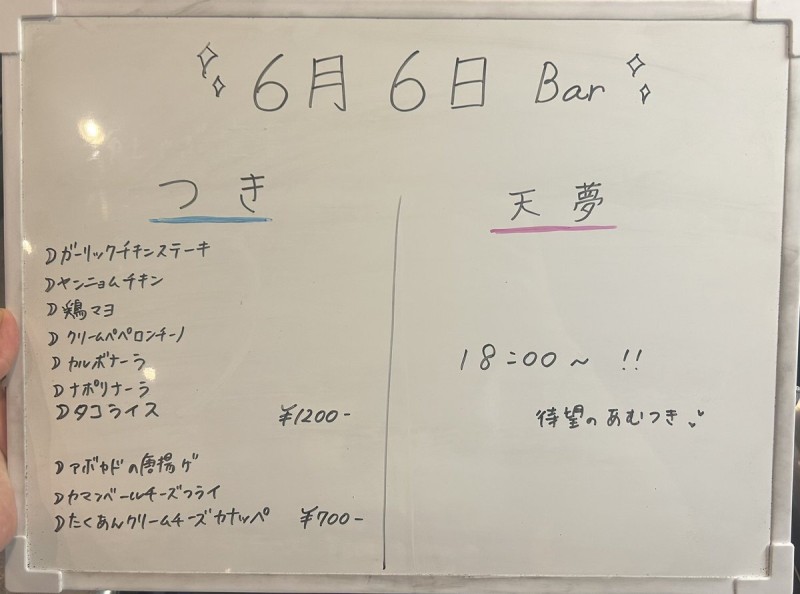 6月6日 Bar
つき
ガーリックチキンステーキ
ヤンニョムチキン
鶏マヨ
クリームペペロンチーノ
カルボナーラ
ナポリナーラ
タコライス ¥1200-
アボカドの唐揚げ
カマンベールチーズフライ
たくあんクリームチーズカナッペ ¥700-
天夢
18:00～ !!
待望のあむつき